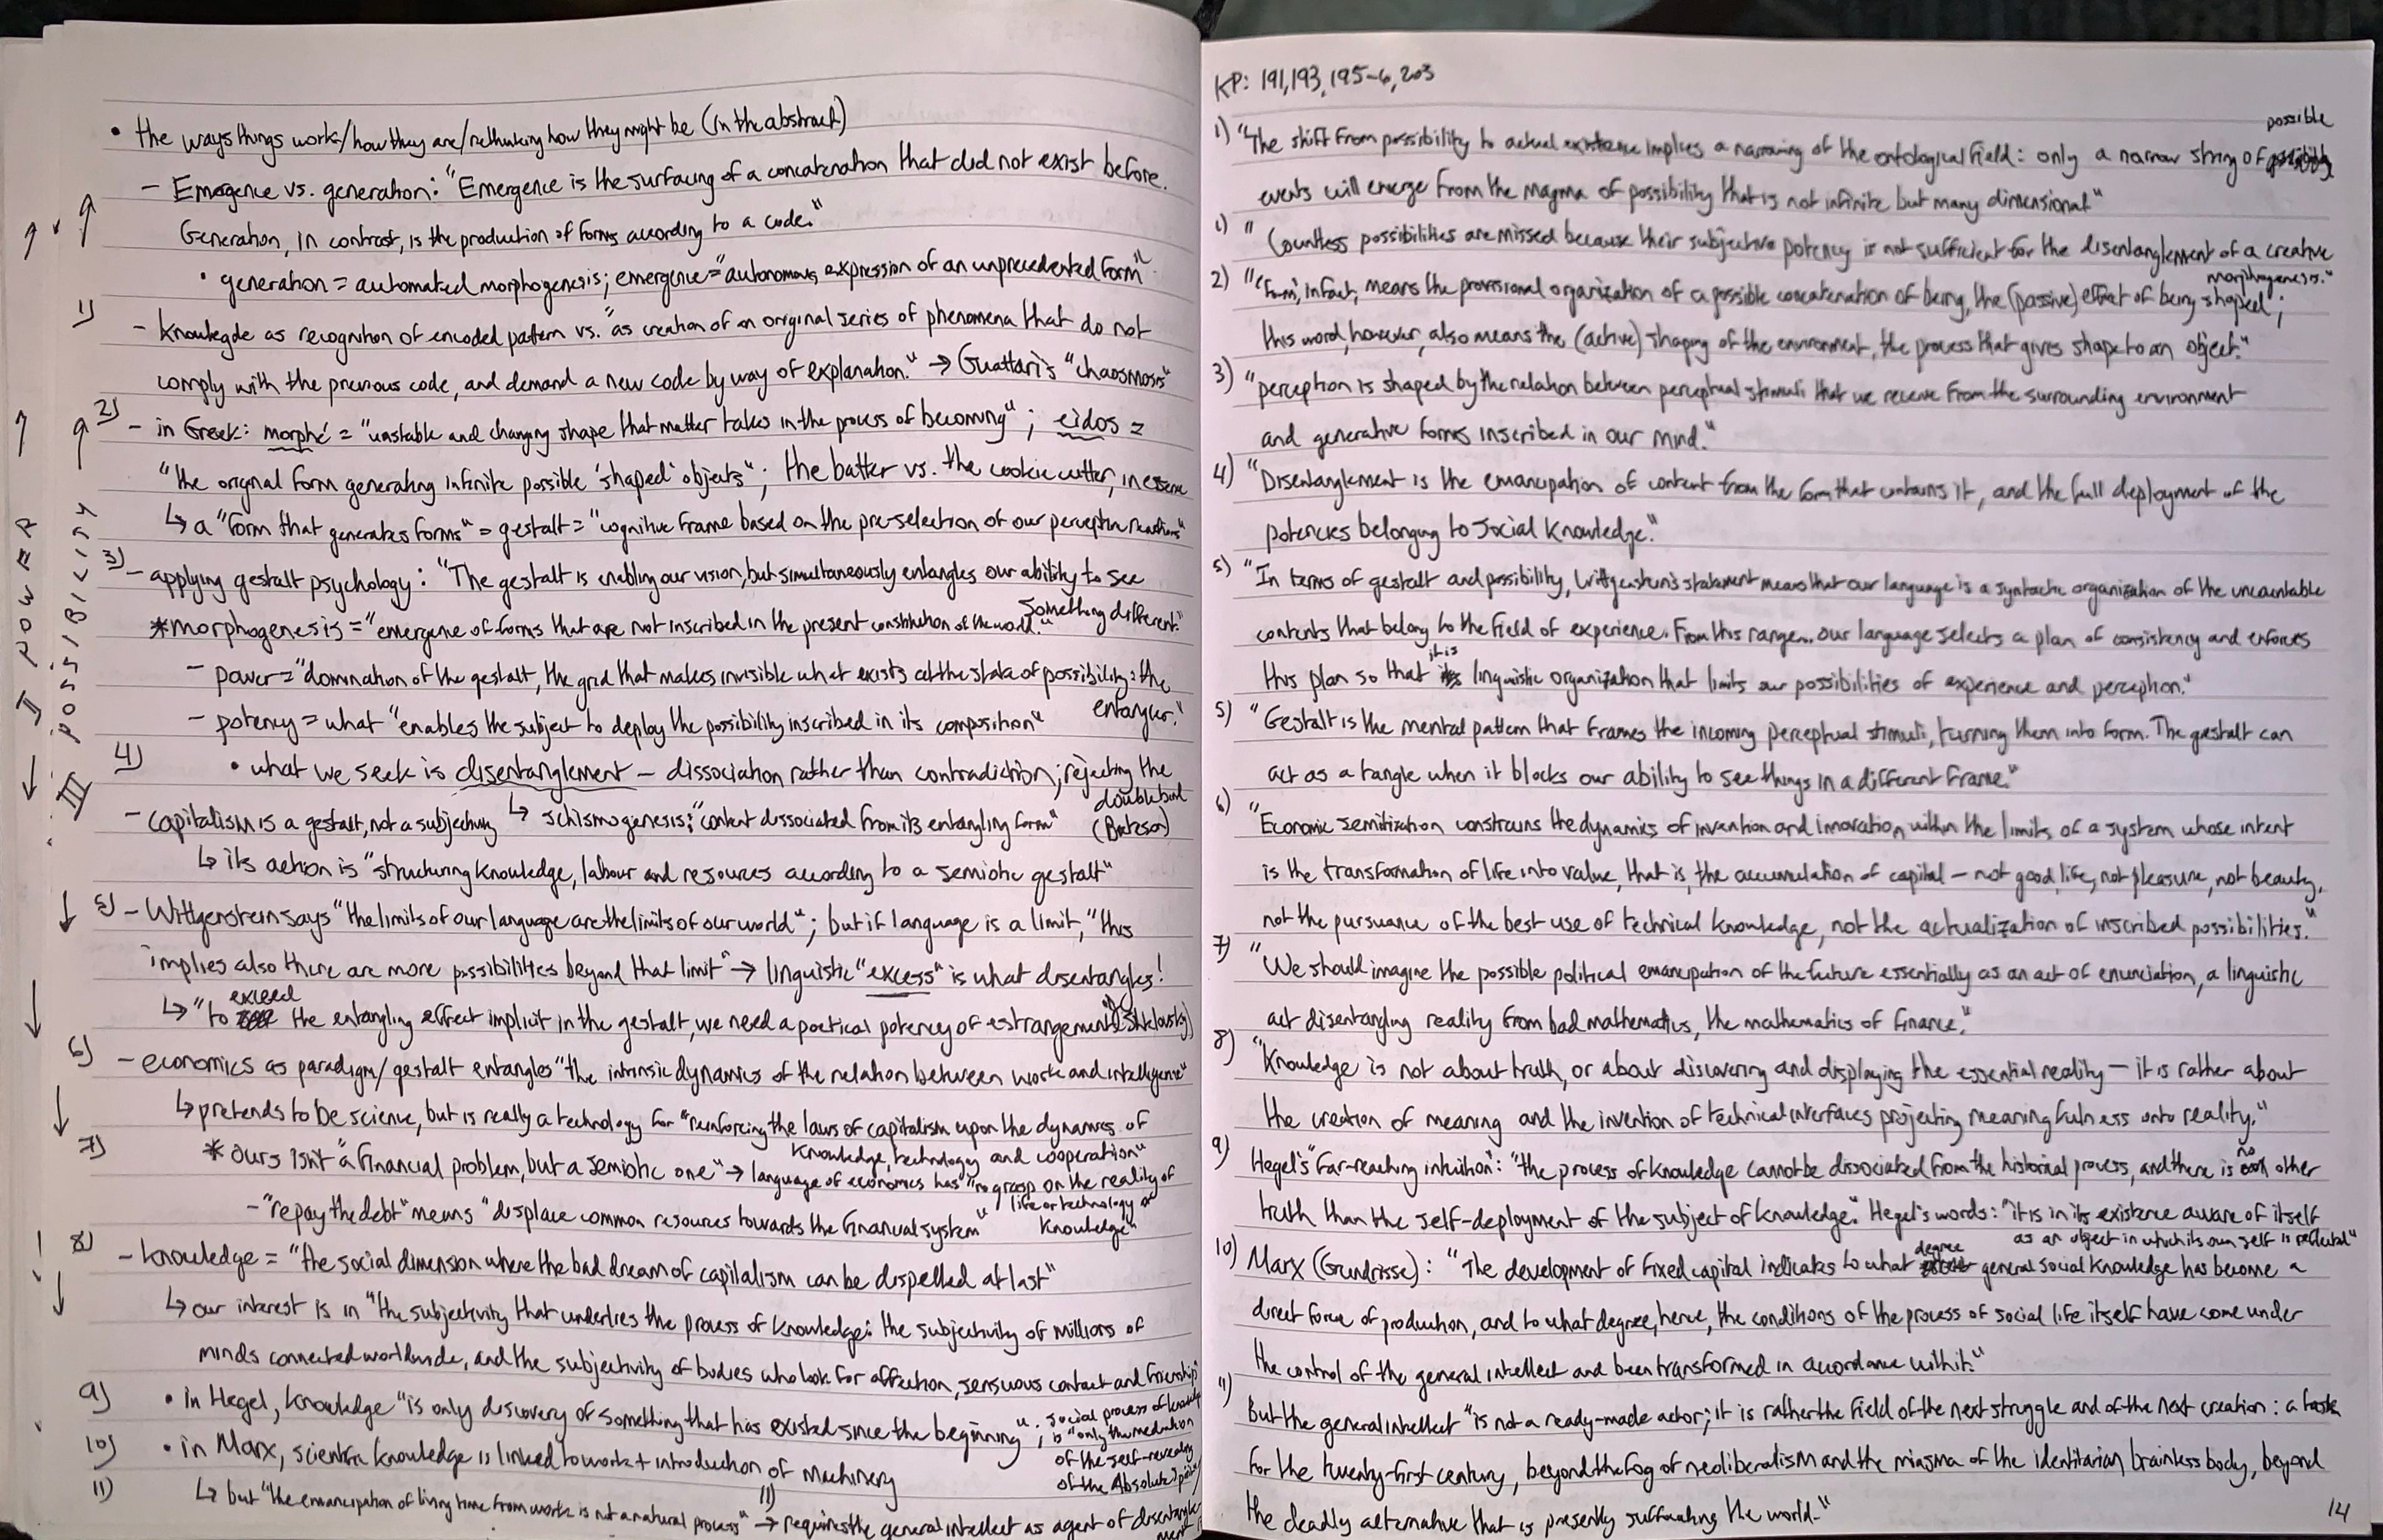 • the ways things work/how they are/rethinking how they might be (in the abstract)
– Emergence vs. generation: "Emergence is the surfacing of a concatenation that did not exist before.
Generation, in contrast, is the production of forms according to a code."
• generation = automated morphogenesis; emergence = "autonomous expression of an unprecedented form"
1) – knowlegde as recognition of encoded pattern vs. "as creation of an original series of phenomena that do not
comply with the previous code, and demand a new code by way of explanation." → Guattari's "chaosmosis"
2) – in Greek: morphé = "unstable and changing shape that matter takes in the process of becoming"; eidos =
"the original form generating infinite possible 'shaped' objects"; the batter vs. the cookie cutter, in essence
↳ a "form that generates forms" = gestalt = "cognitive frame based on the pre-selection of our perceptive reactions"
3) – applying gestalt psychology: "The gestalt is enabling our vision, but simultaneously entangles our ability to see
something different."
*morphogenesis = "emergence of forms that are not inscribed in the present constitution of the world."
– power = "domination of the gestalt, the grid that makes invisible what exists at the state of possibility: the
entangler."
– potency = what "enables the subject to deploy the possibility inscribed in its composition"
4) • what we seek is disentanglement – dissociation rather than contradiction; rejecting the
double bind
(Bateson)
– capitalism is a gestalt, not a subjectivity ↳ schismogenesis: "content dissociated from its entangling form"
↳ its action is "structuring knowledge, labour and resources according to a semiotic gestalt"
5) – Wittgenstein says "the limits of our language are the limits of our world"; but if language is a limit, "this
implies also there are more possibilities beyond that limit" → linguistic "excess" is what disentangles!
↳ "to exceed the entangling effect implicit in the gestalt, we need a poetical potency of estrangement" (Shklovsky)
6) – economics as paradigm/gestalt entangles "the intrinsic dynamics of the relation between work and intelligence"
↳ pretends to be science, but is really a technology for "reinforcing the laws of capitalism upon the dynamics of
knowledge, technology and cooperation"
7) * ours isn't "a financial problem, but a semiotic one" → language of economics has "no grasp on the reality of
life or technology or
knowledge"
– "repay the debt" means "displace common resources towards the financial system"
8) – knowledge = "the social dimension where the bad dream of capitalism can be dispelled at last"
↳ our interest is in "the subjectivity that underlies the process of knowledge: the subjectivity of millions of
minds connected worldwide, and the subjectivity of bodies who look for affection, sensuous contact and friendship"
9) • in Hegel, knowledge "is only discovery of something that has existed since the beginning"; social process of knowledge
is "only the mediation
of the self-revealing
of the Absolute Spirit"
10) • in Marx, scientific knowledge is linked to work + introduction of machinery
11) ↳ but "the emancipation of living time from work is not a natural process" → requires the general intellect as agent of disentangle-
ment
I POWER
II POSSIBILITY
KP: 191, 193, 195-6, 203
1) "The shift from possibility to actual existence implies a narrowing of the ontological field: only a narrow string of possible
events will emerge from the magma of possibility that is not infinite but many dimensional"
1) "Countless possibilities are missed because their subjective potency is not sufficient for the disentanglement of a creative
morphogenesis."
2) "'Form', in fact, means the provisional organization of a possible concatenation of being, the (passive) effect of being shaped;
this word, however, also means the (active) shaping of the environment, the process that gives shape to an object."
3) "perception is shaped by the relation between perceptual stimuli that we receive from the surrounding environment
and generative forms inscribed in our mind."
4) "Disentanglement is the emancipation of content from the form that contains it, and the full deployment of the
potencies belonging to social knowledge."
5) "In terms of gestalt and possibility, Wittgenstein's statement means that our language is a syntactic organization of the uncountable
contents that belong to the field of experience. From this range... our language selects a plan of consistency and enforces
this plan so that it is linguistic organization that limits our possibilities of experience and perception."
5) "Gestalt is the mental pattern that frames the incoming perceptual stimuli, turning them into form. The gestalt can
act as a tangle when it blocks our ability to see things in a different frame."
6) "Economic semitization constrains the dynamics of invention and innovation within the limits of a system whose intent
is the transformation of life into value, that is, the accumulation of capital – not good life, not pleasure, not beauty,
not the pursuance of the best use of technical knowledge, not the actualization of inscribed possibilities."
7) "We should imagine the possible political emancipation of the future essentially as an act of enunciation, a linguistic
act disentangling reality from bad mathematics, the mathematics of finance."
8) "Knowledge is not about truth, or about discovering and displaying the essential reality – it is rather about
the creation of meaning and the invention of technical interfaces projecting meaningfulness onto reality."
9) Hegel's "far-reaching intuition": "the process of knowledge cannot be dissociated from the historical process, and there is no other
truth than the self-deployment of the subject of knowledge." Hegel's words: "it is in its existence aware of itself
as an object in which its own self is reflected"
10) Marx (Grundrisse): "The development of fixed capital indicates to what degree general social knowledge has become a
direct force of production, and to what degree, hence, the conditions of the process of social life itself have come under
the control of the general intellect and been transformed in accordance with it."
11) But the general intellect "is not a ready-made actor; it is rather the field of the next struggle and of the next creation: a task
for the twenty-first century, beyond the fog of neoliberalism and the miasma of the identitarian brainless body, beyond
the deadly alternative that is presently suffocating the world."
14